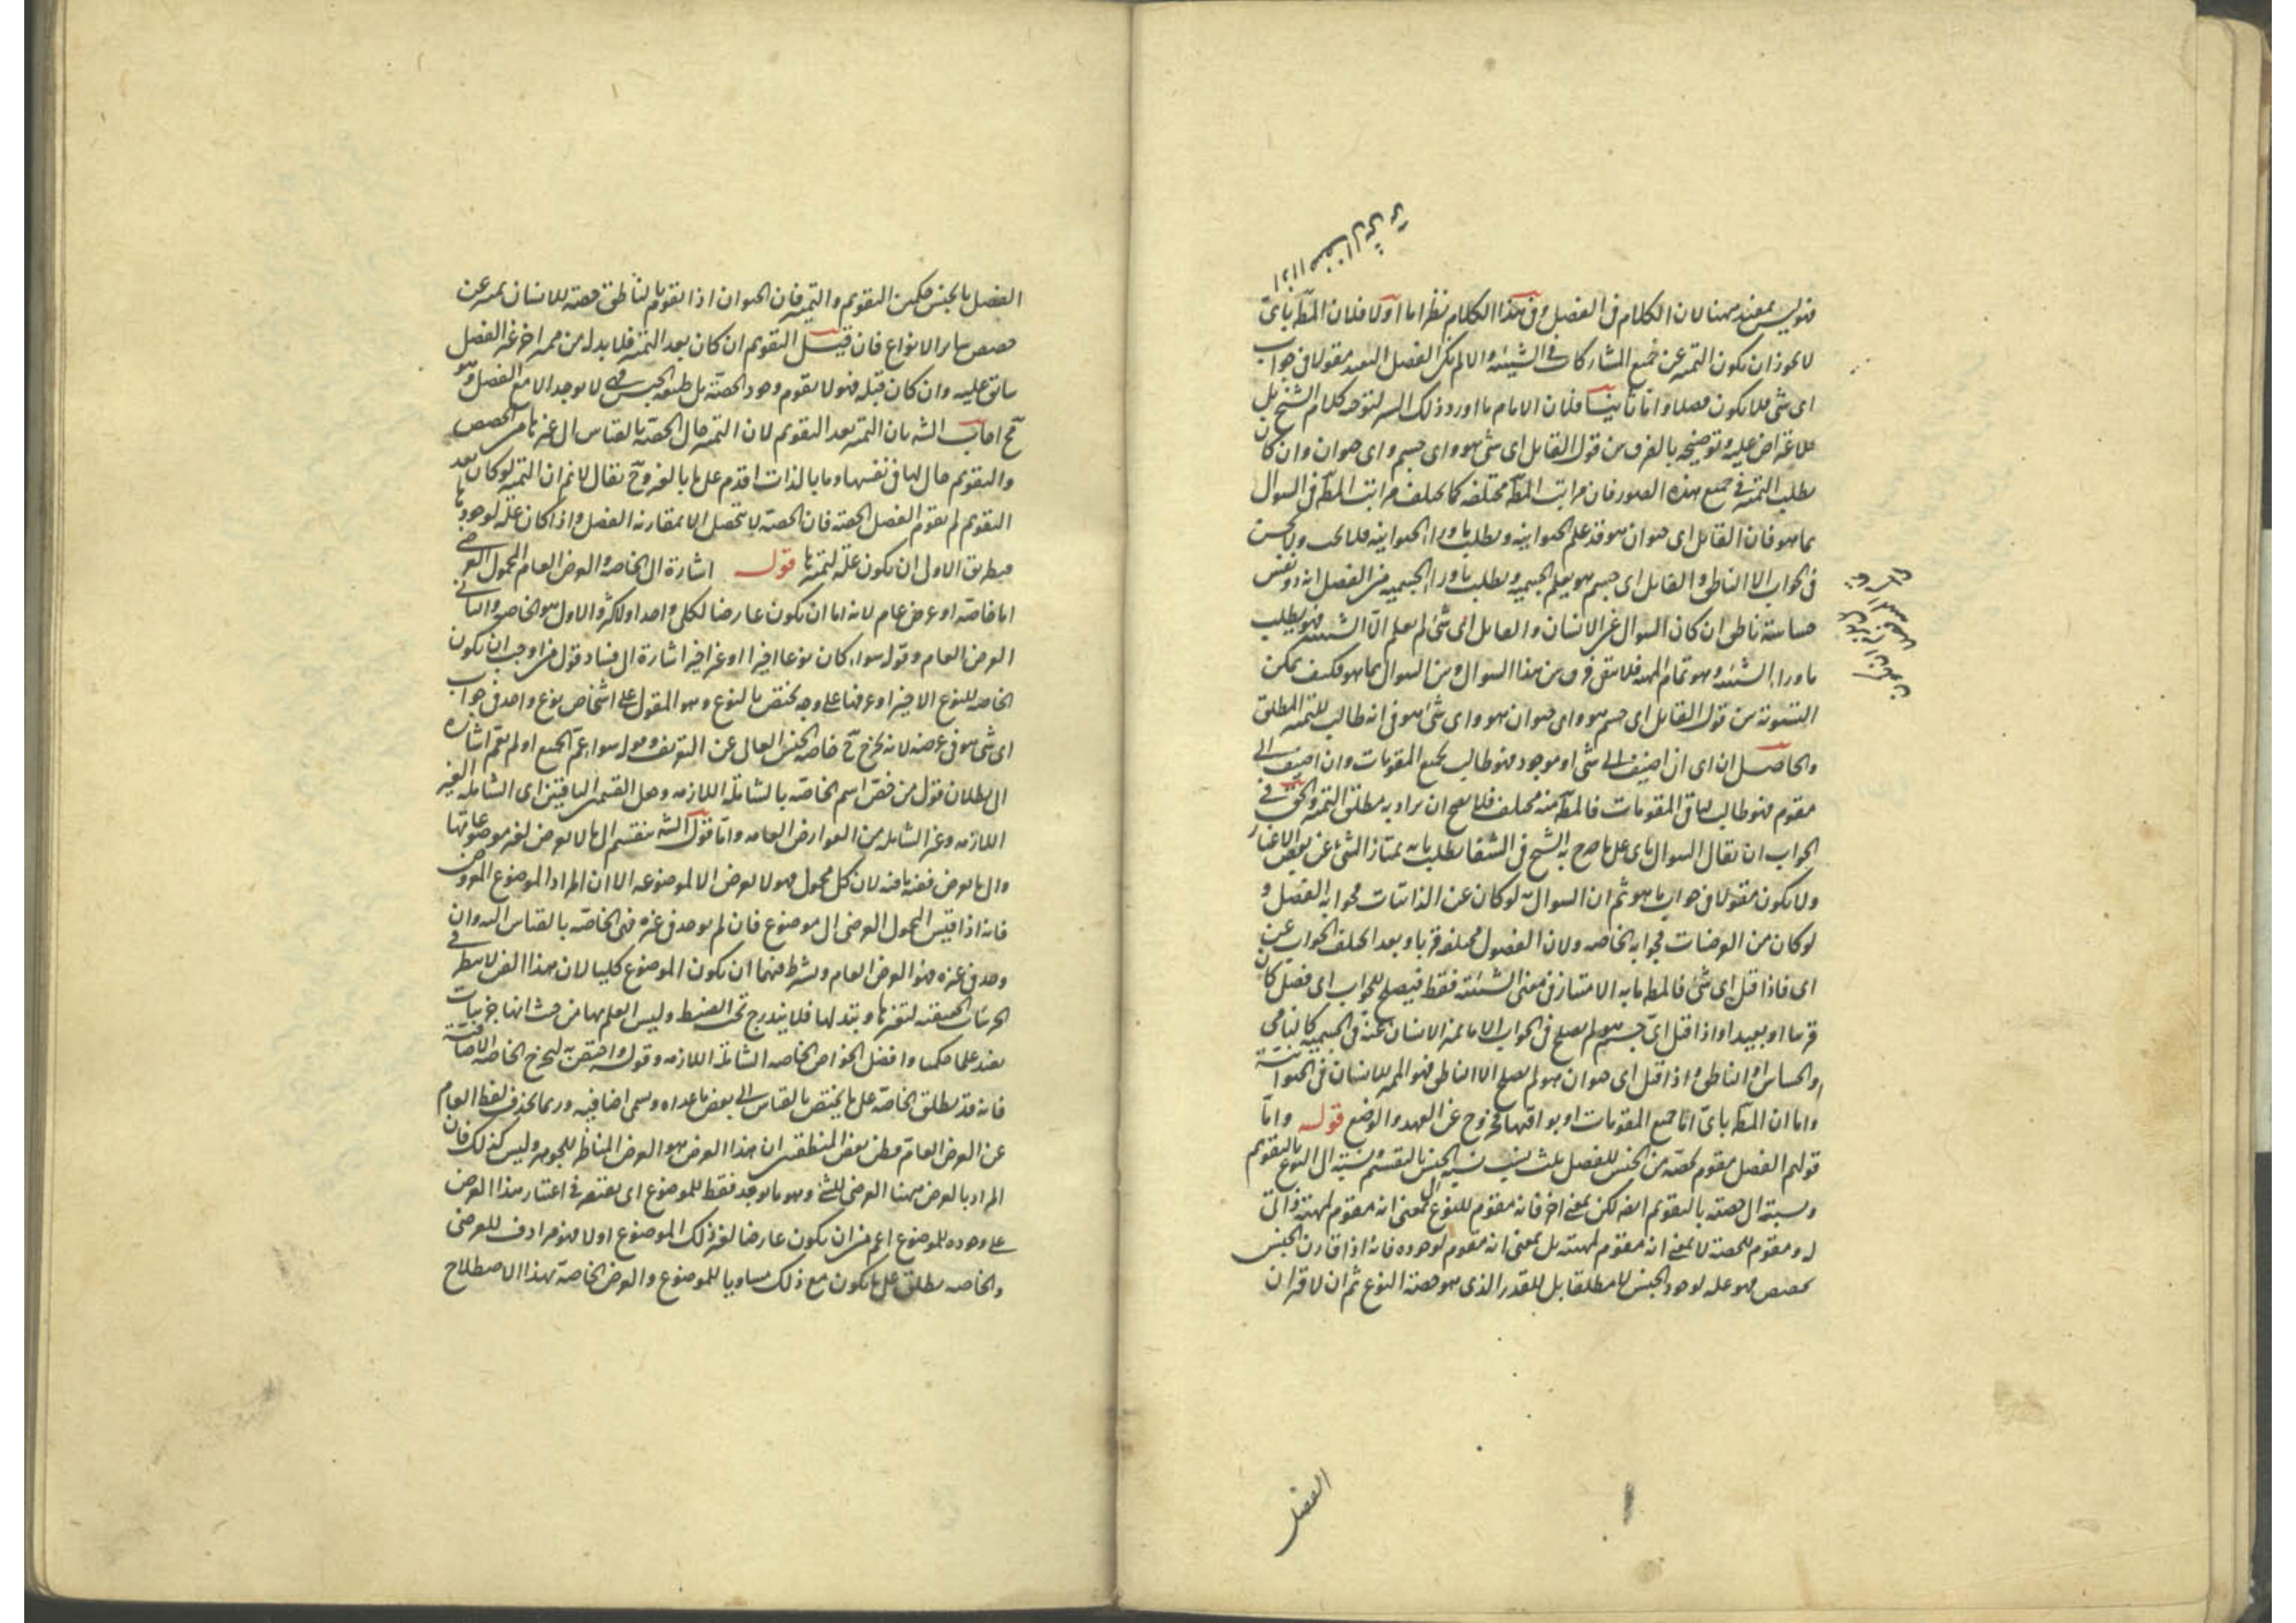 فهو ليس بمعتبر ههنا لان الكلام في الفصل وفي هذا الكلام نظر اما اولا فلان المط باى
لا يجوز ان يكون التميز عن جميع المشاركات في الشيئية والا لم يكن الفصل البعيد مقولا في جواب
اى شى فلا يكون فصلا واما ثانيا فلان الامام ما اورد ذلك لتوجيه كلام الشيخ بل
للاعتراض عليه وتوضيحه بالفرق بين قول القايل اى شى هو واى جسم واى حيوان وان كان
يطلب التميز في جميع هذه الصور فان مراتب المط مختلفة كما يختلف مراتب المط في السوال
بما هو فان القايل اى حيوان هو قد علم الحيوانية ويطلب ما وراء الحيوانية فلا يجب ولا يحسن
في الجواب الا الناطق والقايل اى جسم هو يعلم الجسمية ويطلب ما وراء الجسمية من الفصل انه ذو نفس
حساسة ناطق ان كان السوال عن الانسان والقايل اى شى لم يعلم الا الشيئية فهو يطلب
ما وراء الشيئية وهو تمام المهية فلا يبقى فرق بين هذا السوال وبين السوال بما هو فكيف يمكن
التسوية بين قول القايل اى جسم هو واى حيوان هو واى شى هو في انه طالب للتميز المطلق
والحاصل ان اى ان اضيف الى شى او موجود فهو طالب لجميع المقومات وان اضيف الى
مقوم فهو طالب لباقي المقومات فالمط منه مختلف فلا يصح ان يراد به مطلق التميز والحق في
الجواب ان يقال السوال باى على ما صرح به الشيخ في الشفا يطلب ما به يمتاز الشى عن بعض الاغيار
ولا يكون مقولا في جواب ما هو ثم ان السوال به لو كان عن الذاتيات فجوابه الفصل و
لو كان من العرضيات فجوابه الخاصة ولان الفصول مختلفة قربا وبعدا اختلف الجواب عن
اى فاذا قيل اى شى فالمط ما به الامتياز في معنى الشيئية فقط فيصلح للجواب اى فصل كان
قريبا او بعيدا واذا قيل اى جسم هو لم يصلح في الجواب الا ما يميز الانسان عنه في الجسمية كالنامى
والحساس او الناطق واذا قيل اى حيوان هو لم يصلح الا الناطق فهو المميز للانسان في الحيوانية
واما ان المط باى اما جميع المقومات او بواقيها فخروج عن العهد والوضع قوله واما
قولهم الفصل مقوم لحصة من الجنس للفصل ثلث نسب نسبة الى الجنس بالتقسيم ونسبة الى النوع بالتقويم
ونسبة الى حصته بالتقويم ايضا لكن بمعنى اخر فانه مقوم للنوع بمعنى انه مقوم لمهيته ذاتى
له ومقوم للحصة لا بمعنى انه مقوم لمهيته بل بمعنى انه مقوم لوجوده فانه اذا قارن الجنس
تحصص فهو علة لوجود الجنس لا مطلقا بل للقدر الذى هو حصة النوع ثم ان لاقتران
الفصل
الفصل بالجنس حكمين التقويم والتميز فان الحيوان اذا تقوم بالناطق حصة للانسان يميز عن
حصص ساير الانواع فان قيل التقويم ان كان بعد التميز فلا بد له من مميز اخر غير الفصل
سابق عليه وان كان قبله فهو لا يقوم وجود الحصة بل طبيعة الجنس فهى لا يوجد الا مع الفصل وهو
مح اجاب الشه بان التميز بعد التقويم لان التميز حال الحصة بالقياس الى غيرها من الحصص
والتقويم حال لها في نفسها وما بالذات اقدم على ما بالغير وح يقال لانم ان التميز لو كان بعد
التقويم لم يقوم الفصل الحصة فان الحصة لا يتحصل الا بمقارنة الفصل واذا كان علة لوجودها
فبطريق الاولى ان يكون علة لتميزها قوله اشارة الى الخاصة والعرض العام المحمول العرضى
اما خاصة او عرض عام لانه اما ان يكون عارضا لكلى واحد او لاكثر والاول هو الخاصة والثانى
العرض العام وقوله سواء كان نوعا اخيرا او غير اخير اشارة الى فساد قول من اوجب ان يكون
الخاصة للنوع الاخير او عرفها على وجه يختص بالنوع وهو المقول على اشخاص نوع واحد في جواب
اى شى هو في عرضه لانه يخرج ح خاصة الجنس العالى عن التعريف وقوله سواء عم الجميع او لم يعم اشارة
الى بطلان قول من خص اسم الخاصة بالشاملة اللازمة وجعل القسمين الباقيين اى الشاملة الغير
اللازمة وغير الشاملة من العوارض العامة واما قول الشه ينقسم الى ما لا يعرض لغير موضوعاتها
والى ما يعرض ففيه ما فيه لان كل محمول فهو لا يعرض الا لموضوعه الا ان المراد الموضوع المعروض
فانه اذا قيس المحمول العرضى الى موضوع فان لم يوجد في غيره فهى الخاصة بالقياس اليه وان
وجد في غيره فهو العرض العام ويشترط فيهما ان يكون الموضوع كليا لان هذا الفن لا ينظر في
الجزئيات الحقيقية لتغيرها وتبدلها فلا يندرج تحت الضبط وليس العلم بها من حيث انها جزئيات
يفيد علما حكميا وافضل الخواص الخاصة الشاملة اللازمة وقوله واختص به ليخرج الخاصة الاضافية
فانه قد يطلق الخاصة على ما يختص بالقياس الى بعض ما عداه وسمى اضافية وربما يحذف لفظ العام
عن العرض العام فظن بعض المنطقيين ان هذا العرض هو العرض المناظر للجوهر وليس كذلك فان
المراد بالعرض ههنا العرضى للشى وهو ما يوجد فقط للموضوع اى يقتصر في اعتبار هذا العرض
على وجوده للموضوع اعم من ان يكون عارضا لغير ذلك الموضوع اولا فهو مرادف للعرضى
والخاصة يطلق على ما يكون مع ذلك مساويا للموضوع والعرض الخاصة بهذا الاصطلاح